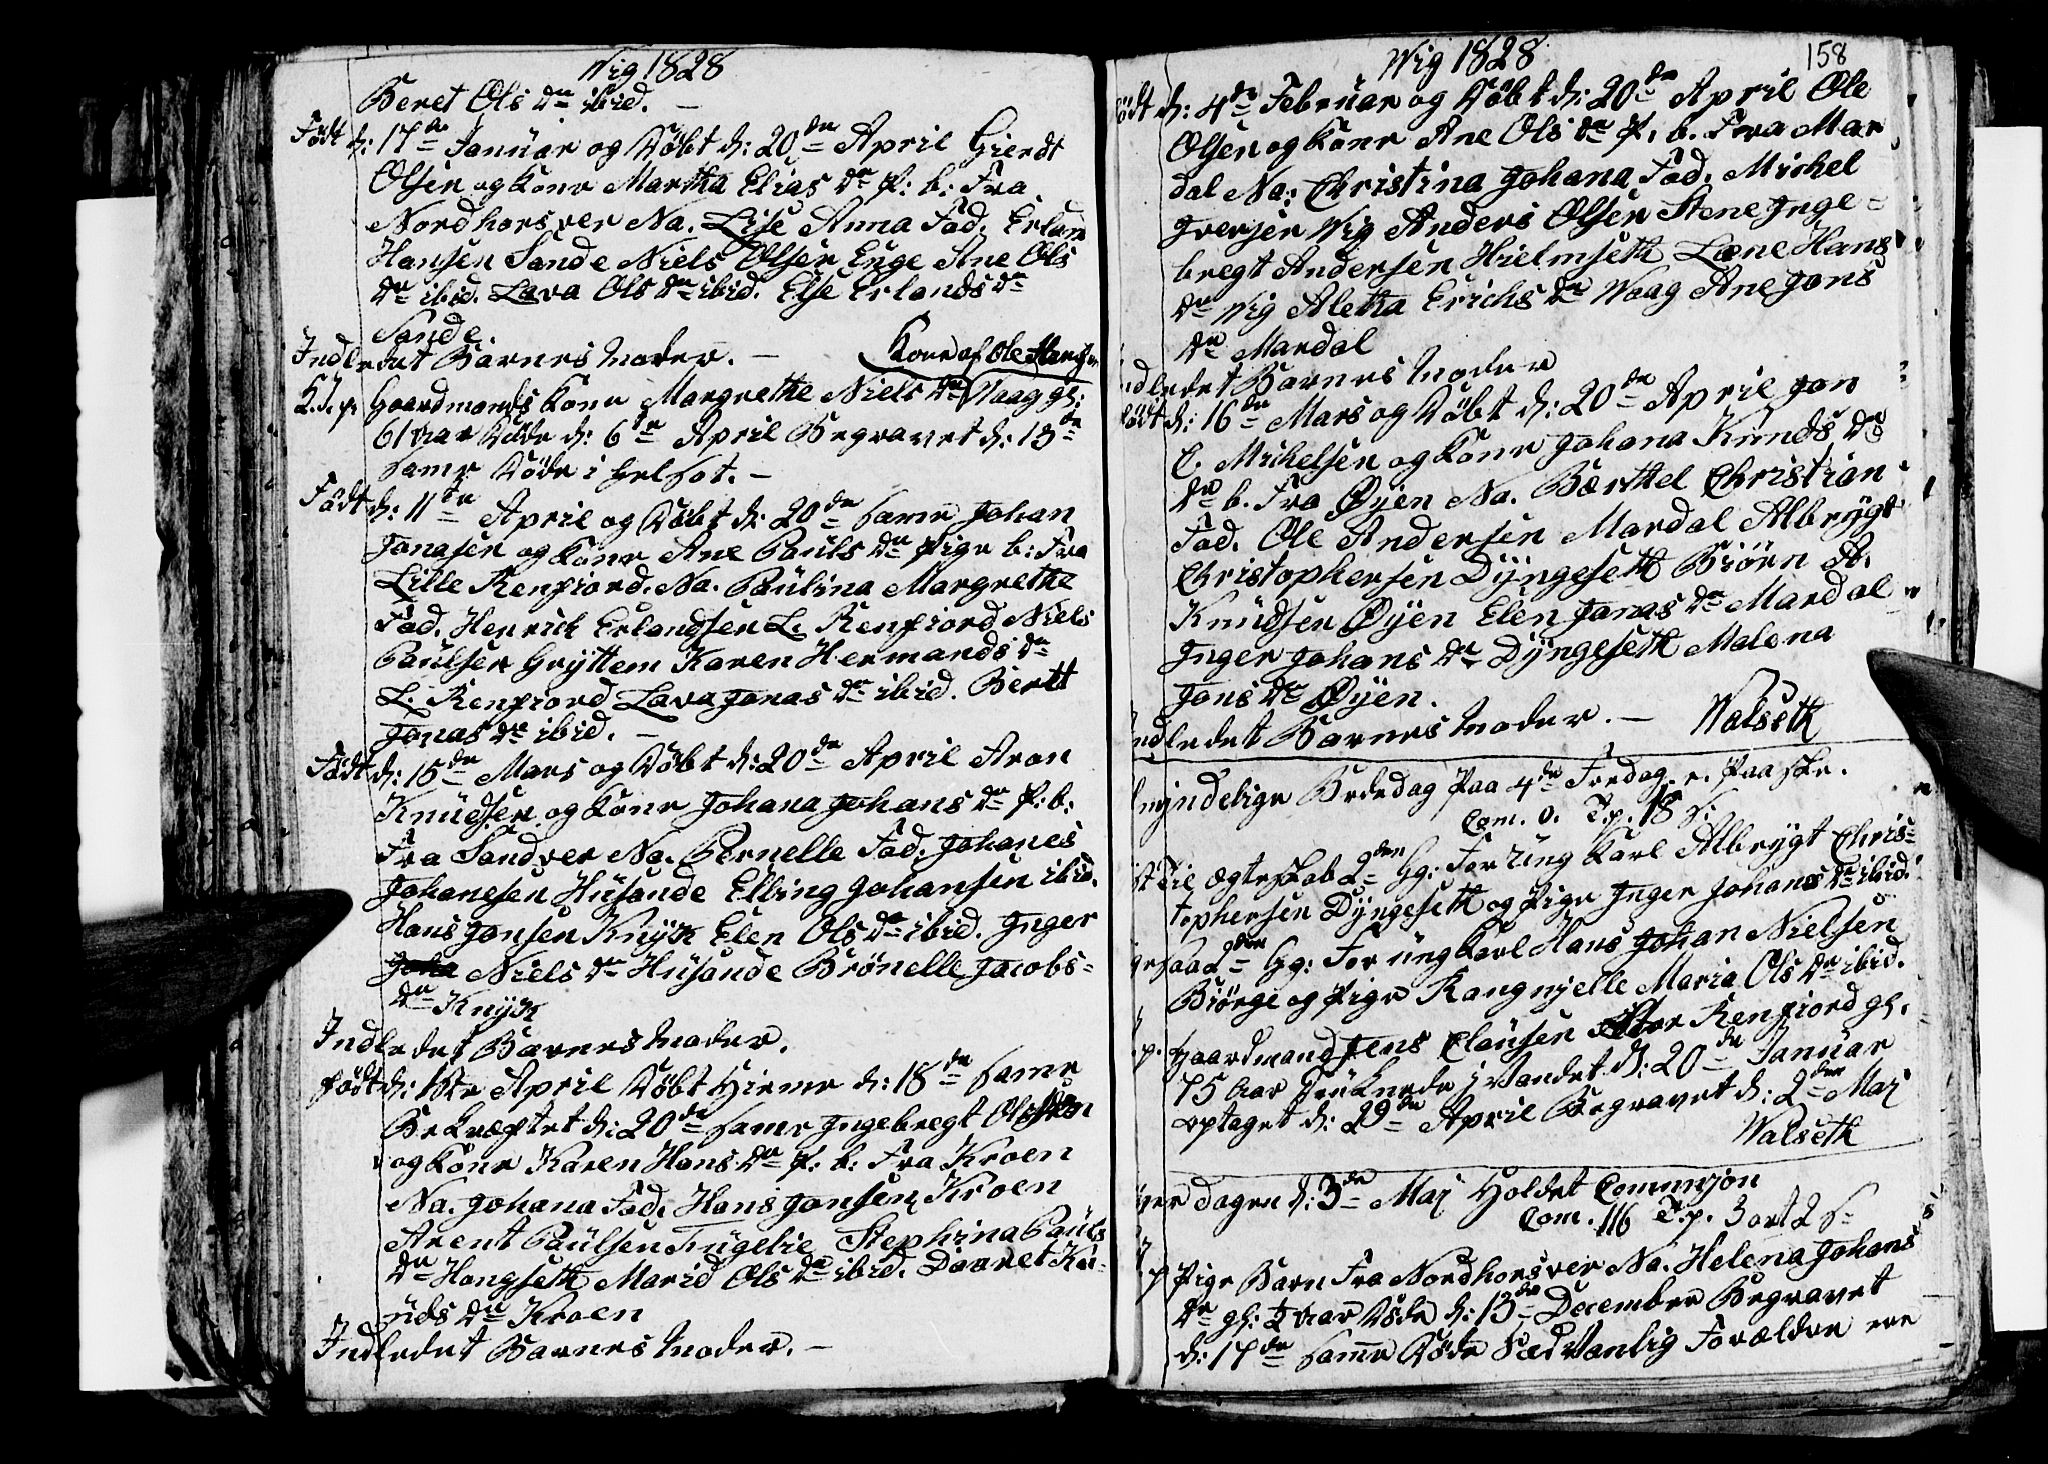 Wig 1828
Beret Ols dr ibid. —
Födt d: 17de Januar og Döbt d: 20de April Gierdt
Olsen og Kone Martha Elias dr P: b: Fra
Nordhorsver Na. Lise Anna Fad. Erlan
Hansen Sande Niels Olsen Enge Ane Ols
dr ibid. Lava Ols dr ibid. Else Erlands dr
Sande.
Indledet Barnes Moder. — Kone af Ole Hans
Gaardmands Kone Margrethe Niels dr Waag gl:
61 Aar Döde d: 6te April Begravet d: 13de
Same Döde i
Födt d: 11te April og Döbt d: 20de Same Johan
Jonasen og Kone Ane Pauls dr Pige b: Fra
Lille Renfiord. Na. Paulina Margrethe
Fad. Henrich Erlandsen L. Renfiord Niels
Paulsen Gryttem Karen Hermands dr
L. Renfiord Lava Jonas dr ibid. Beret
Jonas dr ibid. —
Födt d: 15de Mars og Döbt d: 20de April Aron
Knudsen og Kone Johana Johans dr P: b:
Fra Sandver Na. Pernelle Fad. Johanes
Johanesen Husande Elling Johansen ibid.
Hans Jonsen Knyk Elen Ols dr ibid. Inger
Niels dr Husande Brönelle Jacobs-
dr Knyk
Indledet Barnes Moder.
Födt d: 1ste April Döbt Hieme d: 18de Same
Bekræftet d: 20de Same Ingebregt Olsen
og Kone Karen Hans dr P: b: Fra Kroen
Na. Johana Fad. Hans Jonsen Kroen
Arent Paulsen Stephina Pauls
dr Hongseth Marid Ols dr ibid. Daaret Kn-
uds dr Kroen
Indledet Barnes Moder. —
Wig 1828 158
Födt d: 4de Februar og Döbt d: 20de April Ole
Olsen og Kone Ane Ols dr P. b. Fra Mar
dal Na: Christina Johana Fad. Michel
Iversen Wig Anders Olsen Stene Inge-
bregt Andersen Hielmseth Læne Hans
dr Wig Aletha Erichs dr Waag Ane Jons
dr Mardal
Indledet Barnes Moder
Födt d: 16de Mars og Döbt d: 20de April Jon
C. Michelsen og Kone Johana Knuds dr
dr b. Fra Øyen Na. Bærthel Christian
Fad. Ole Andersen Mardal Albrygt
Christophersen Dyngeseth Biørn A.
Knudsen Øyen Elen Jonas dr Mardal
Inger Johans dr Dyngeseth Malena
Jons dr Øyen.
Indledet Barnes Moder. — Walseth
Almindelige Bededag Paa 4de Fredag e. Paaske.
Com. 0. T.p. 18 s.
Til Ægteskab 2den Gg: For ung Karl Albrygt Chris-
tophersen Dyngeseth og Pige Inger Johans dr ibid.
2den Gg: For ung Karl Hans Johan Nielsen
Biørge og Pige Rangnjelle Maria Ols dr ibid.
Gaardmand Jens Clausen Stor Renfiord gl.
75 Aar Druknede i Vandet d: 20de Januar
optaget d: 29de April Begravet d: 2den Maj
Walseth
dagen d: 3de Maj Holdet Communjon
Com. 116 T.p. 3 ort 2 s
Pige Barn Fra Nordhorsver Na. Helena Johans
dr gl: ½ Aar Döde d: 13de December Begravet
d: 17de Same Döde Sædvanlig Forældre ere